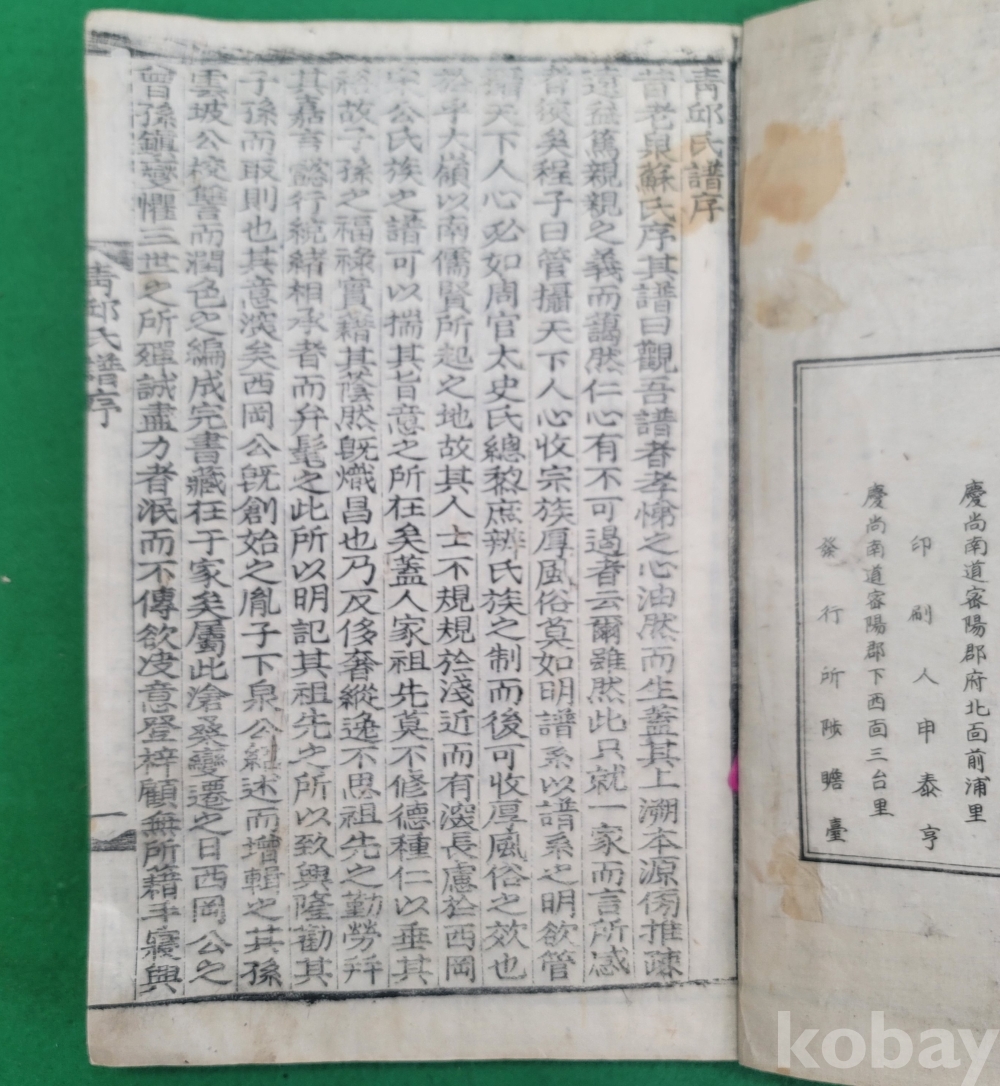 慶尚南道密陽郡府北面前浦里
印刷人申泰亨
慶尚南道密陽郡下西面三台里
發行所陟瞻臺
靑邱氏譜序
昔老泉蘇氏序其譜曰觀吾譜者孝悌之心油然而生蓋其上溯本源傍推疎
遠益篤親親之義而藹然仁心有不可遏者云爾雖然此只就一家而言所感
者淺矣程子曰管攝天下人心收宗族厚風俗莫如明譜系以譜系之明欲管
攝天下人心必如周官太史氏總黎庶辨氏族之制而後可收厚風俗之效也
於乎大嶺以南儒賢所起之地故其人士不規規於淺近而有深長慮於西岡
宋公氏族之譜可以揣其旨意之所在矣蓋人家祖先莫不修德種仁以垂其
後故子孫之福祿實藉其蔭然旣熾昌也乃反侈奢縱逸不思祖先之勤勞幷
其嘉言懿行統緖相承者而弁髦之此所以明記其祖先之所以致興隆勸其
子孫而取則也其意深矣西岡公旣創始之胤子下泉公紹述而增輯之其孫
雲坡公校讐而潤色之編成完書藏在于家矣屬此滄桑變遷之日西岡公之
曾孫鎭燮懼三世之所殫誠盡力者泯而不傳欲決意登梓顧無所藉手寢興
靑邱氏譜序
一
kobay